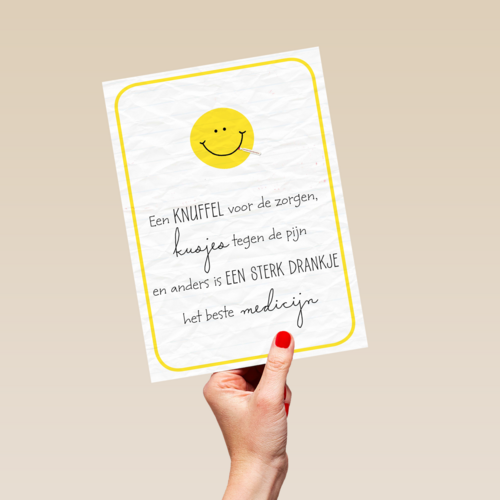 Een KNUFFEL voor de zorgen,
kusjes tegen de pijn
en anders is EEN STERK DRANKJE
het beste medicijn